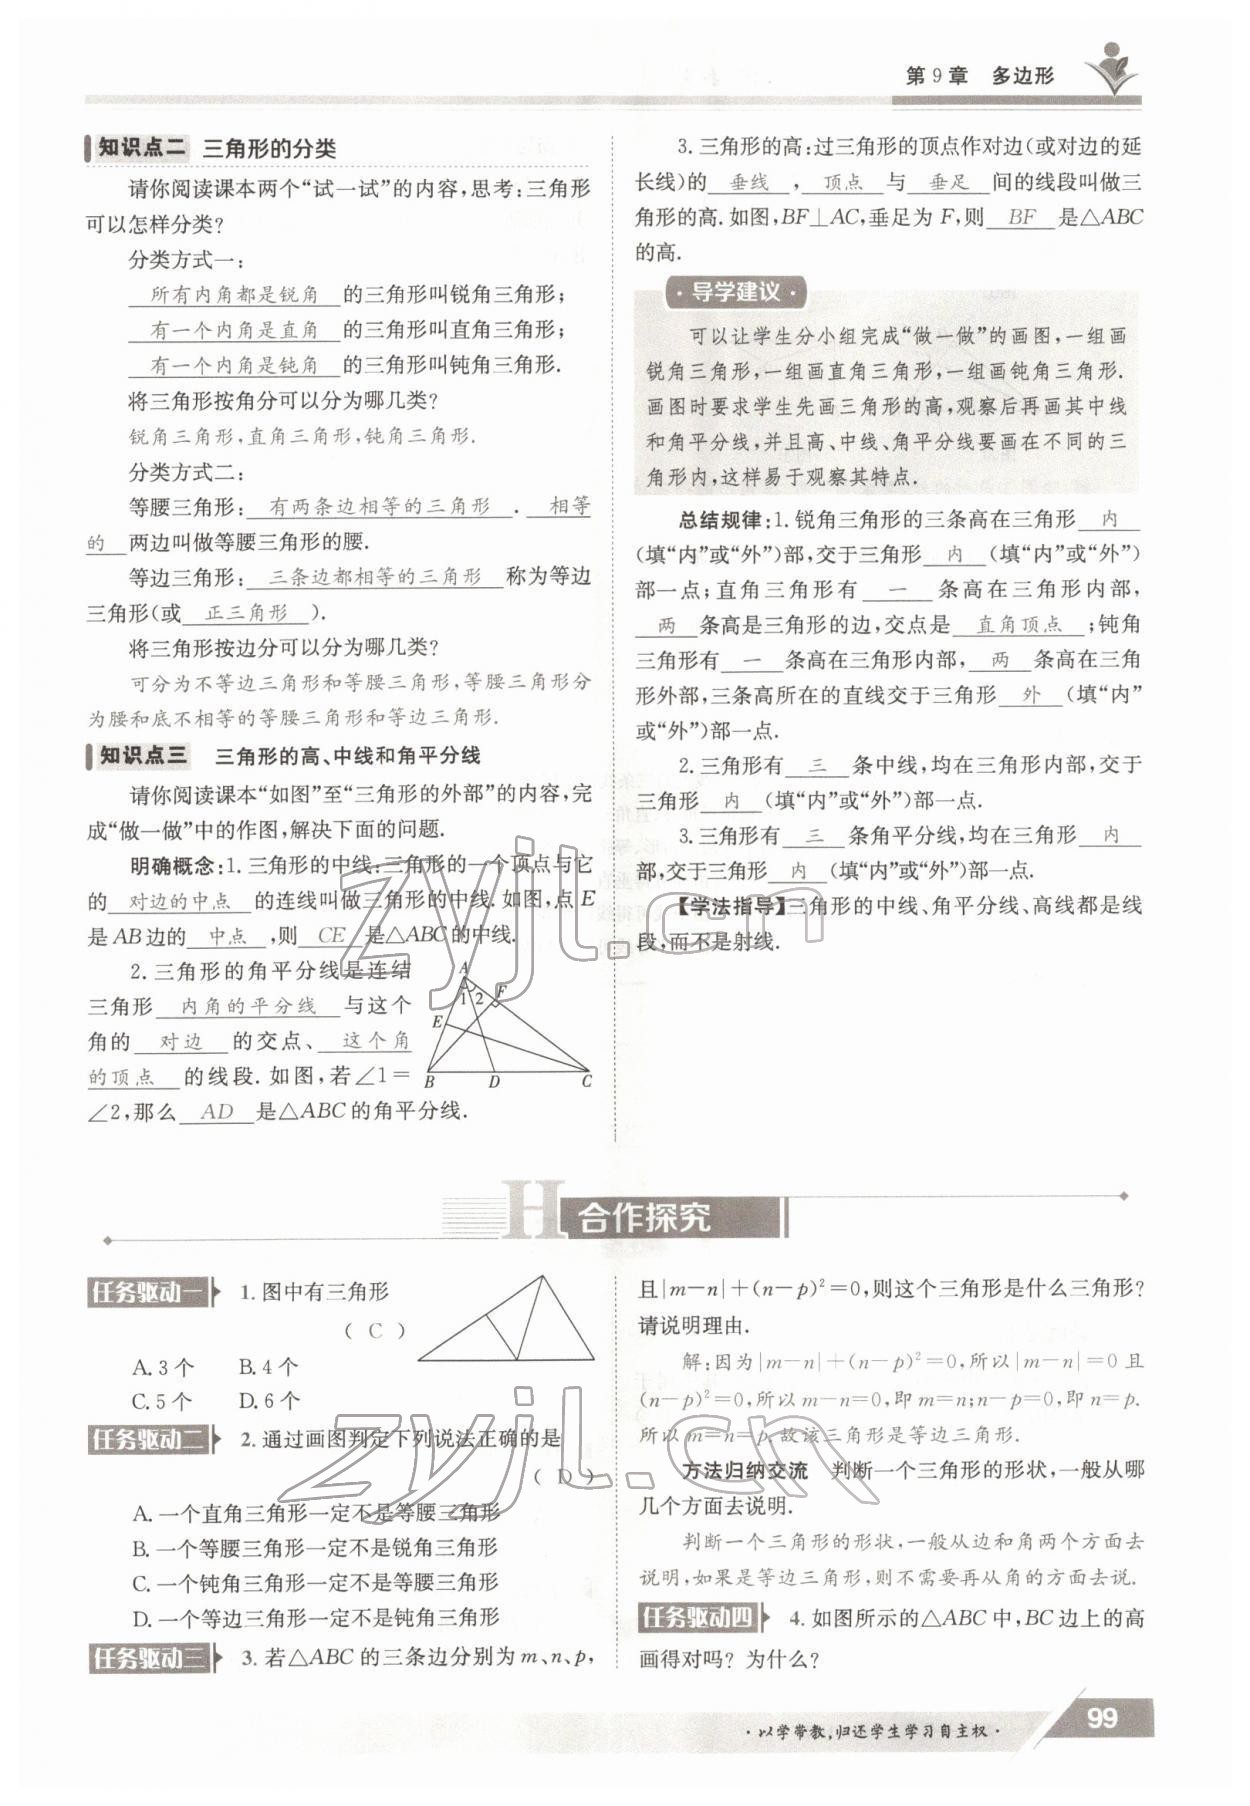 第9章 多边形
知识点二 三角形的分类
请你阅读课本两个“试一试”的内容,思考:三角形
可以怎样分类?
分类方式一:
所有内角都是锐角 的三角形叫锐角三角形;
有一个内角是直角 的三角形叫直角三角形;
有一个内角是钝角 的三角形叫钝角三角形.
将三角形按角分可以分为哪几类?
锐角三角形,直角三角形,钝角三角形.
分类方式二:
等腰三角形: 有两条边相等的三角形 . 相等
的 两边叫做等腰三角形的腰.
等边三角形: 三条边都相等的三角形 称为等边
三角形(或 正三角形 ).
将三角形按边分可以分为哪几类?
可分为不等边三角形和等腰三角形,等腰三角形分
为腰和底不相等的等腰三角形和等边三角形.
知识点三 三角形的高、中线和角平分线
请你阅读课本“如图”至“三角形的外部”的内容,完
成“做一做”中的作图,解决下面的问题.
明确概念:1.三角形的中线:三角形的一个顶点与它
的 对边的中点 的连线叫做三角形的中线.如图,点E
是AB边的 中点 ,则 CE 是△ABC的中线.
2.三角形的角平分线是连结
三角形 内角的平分线 与这个
角的 对边 的交点、 这个角
的顶点 的线段.如图,若∠1=
∠2,那么 AD 是△ABC的角平分线.
A
1 2 F
E
B D C
3.三角形的高:过三角形的顶点作对边(或对边的延
长线)的 垂线 , 顶点 与 垂足 间的线段叫做三
角形的高.如图,BF⊥AC,垂足为F,则 BF 是△ABC
的高.
·导学建议·
可以让学生分小组完成“做一做”的画图,一组画
锐角三角形,一组画直角三角形,一组画钝角三角形.
画图时要求学生先画三角形的高,观察后再画其中线
和角平分线,并且高、中线、角平分线要画在不同的三
角形内,这样易于观察其特点.
总结规律:1.锐角三角形的三条高在三角形 内
(填“内”或“外”)部,交于三角形 内 (填“内”或“外”)
部一点;直角三角形有 一 条高在三角形内部,
两 条高是三角形的边,交点是 直角顶点 ;钝角
三角形有 一 条高在三角形内部, 两 条高在三角
形外部,三条高所在的直线交于三角形 外 (填“内”
或“外”)部一点.
2.三角形有 三 条中线,均在三角形内部,交于
三角形 内 (填“内”或“外”)部一点.
3.三角形有 三 条角平分线,均在三角形 内
部,交于三角形 内 (填“内”或“外”)部一点.
【学法指导】三角形的中线、角平分线、高线都是线
段,而不是射线.
zyjl.cn
H 合作探究
任务驱动一 1.图中有三角形
( C )
A.3个 B.4个
C.5个 D.6个
任务驱动二 2.通过画图判定下列说法正确的是
( D )
A.一个直角三角形一定不是等腰三角形
B.一个等腰三角形一定不是锐角三角形
C.一个钝角三角形一定不是等腰三角形
D.一个等边三角形一定不是钝角三角形
任务驱动三 3.若△ABC的三条边分别为m、n、p,
且|m-n|+(n-p)²=0,则这个三角形是什么三角形?
请说明理由.
解:因为|m-n|+(n-p)²=0,所以|m-n|=0且
(n-p)²=0,所以m-n=0,即m=n;n-p=0,即n=p.
所以m=n=p.故该三角形是等边三角形.
方法归纳交流 判断一个三角形的形状,一般从哪
几个方面去说明.
判断一个三角形的形状,一般从边和角两个方面去
说明,如果是等边三角形,则不需要再从角的方面去说.
任务驱动四 4.如图所示的△ABC中,BC边上的高
画得对吗?为什么?
zyjl.cn
·以学带教,归还学生学习自主权·
99